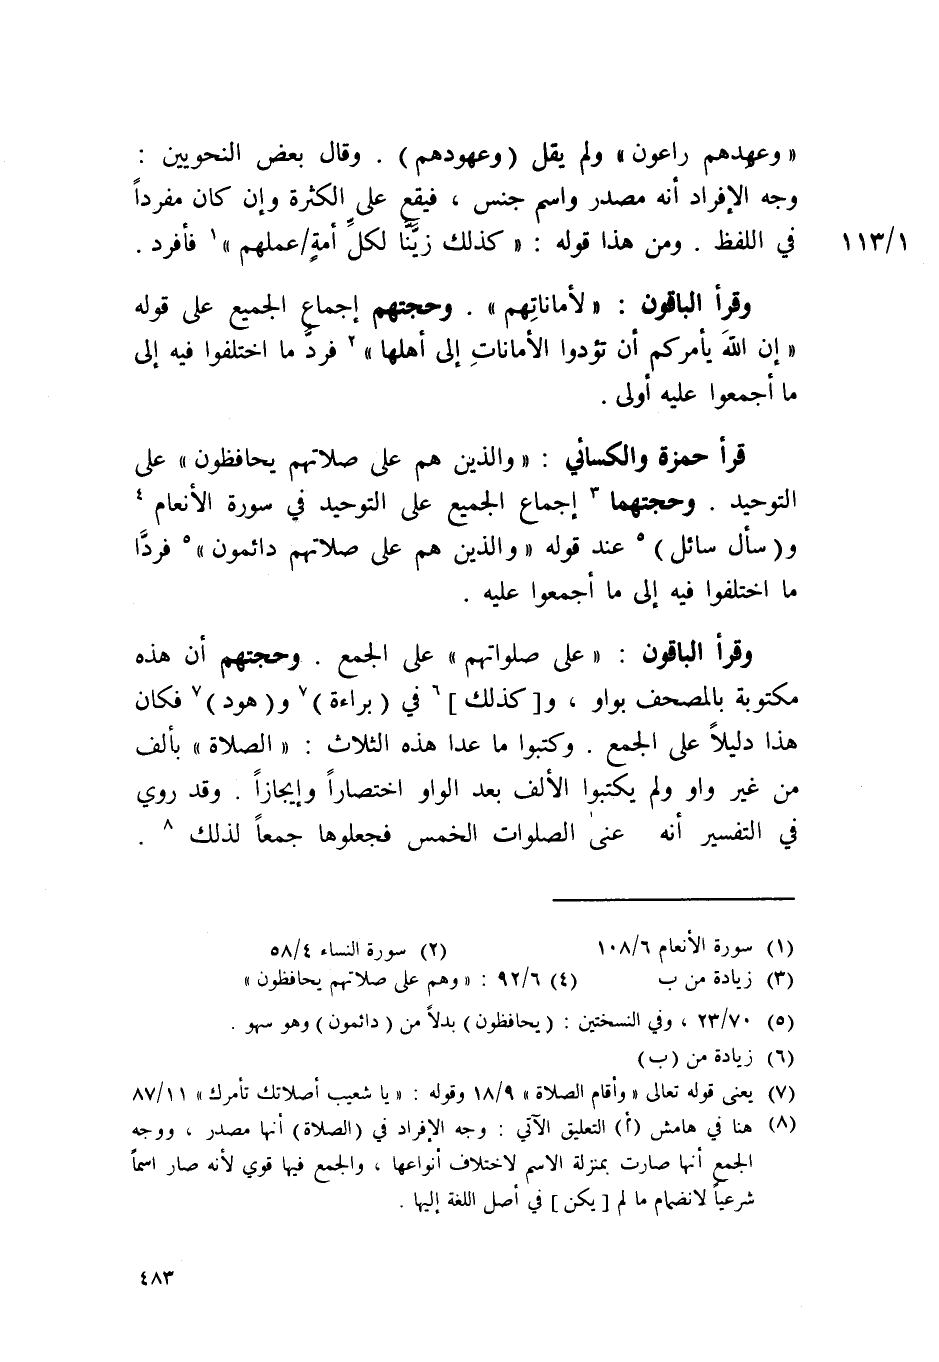 « وعهدهم راعون » ولم يقل ( وعهودهم ) . وقال بعض النحويين :
وجه الإفراد أنه مصدر واسم جنس ، فيقع على الكثرة وإن كان مفرداً
في اللفظ . ومن هذا قوله : « كذلك زيَّنَّا لكلِّ أمةٍ/عملهم »١ فأفرد . ١١٣/١
وقرأ الباقون : « لأماناتِهم » . وحجتهم إجماع الجميع على قوله
« إن اللهَ يأمركم أن تؤدوا الأماناتِ إلى أهلها »٢ فردَّ ما اختلفوا فيه إلى
ما أجمعوا عليه أولى .
قرأ حمزة والكسائي : « والذين هم على صلاتهم يحافظون » على
التوحيد . وحجتهما٣ إجماع الجميع على التوحيد في سورة الأنعام٤
و( سأل سائل )٥ عند قوله « والذين هم على صلاتهم دائمون »٥ فردَّا
ما اختلفوا فيه إلى ما أجمعوا عليه .
وقرأ الباقون : « على صلواتهم » على الجمع . وحجتهم أن هذه
مكتوبة بالمصحف بواو ، و[ كذلك ]٦ في ( براءة )٧ و( هود )٧ فكان
هذا دليلاً على الجمع . وكتبوا ما عدا هذه الثلاث : « الصلاة » بألف
من غير واو ولم يكتبوا الألف بعد الواو اختصاراً وإيجازاً . وقد روي
في التفسير أنه عنىٰ الصلوات الخمس فجعلوها جمعاً لذلك٨ .
(١) سورة الأنعام ١٠٨/٦ (٢) سورة النساء ٥٨/٤
(٣) زيادة من ب (٤) ٩٢/٦ : « وهم على صلاتهم يحافظون »
(٥) ٢٣/٧٠ ، وفي النسختين : ( يحافظون ) بدلاً من ( دائمون ) وهو سهو .
(٦) زيادة من ( ب )
(٧) يعنى قوله تعالى « وأقام الصلاة » ١٨/٩ وقوله : « يا شعيب أصلاتك تأمرك » ٨٧/١١
(٨) هنا في هامش ( أ ) التعليق الآتي : وجه الإفراد في ( الصلاة ) أنها مصدر ، ووجه
الجمع أنها صارت بمنزلة الاسم لاختلاف أنواعها ، والجمع فيها قوي لأنه صار اسماً
شرعياً لانضمام ما لم [ يكن ] في أصل اللغة إليها .
٤٨٣